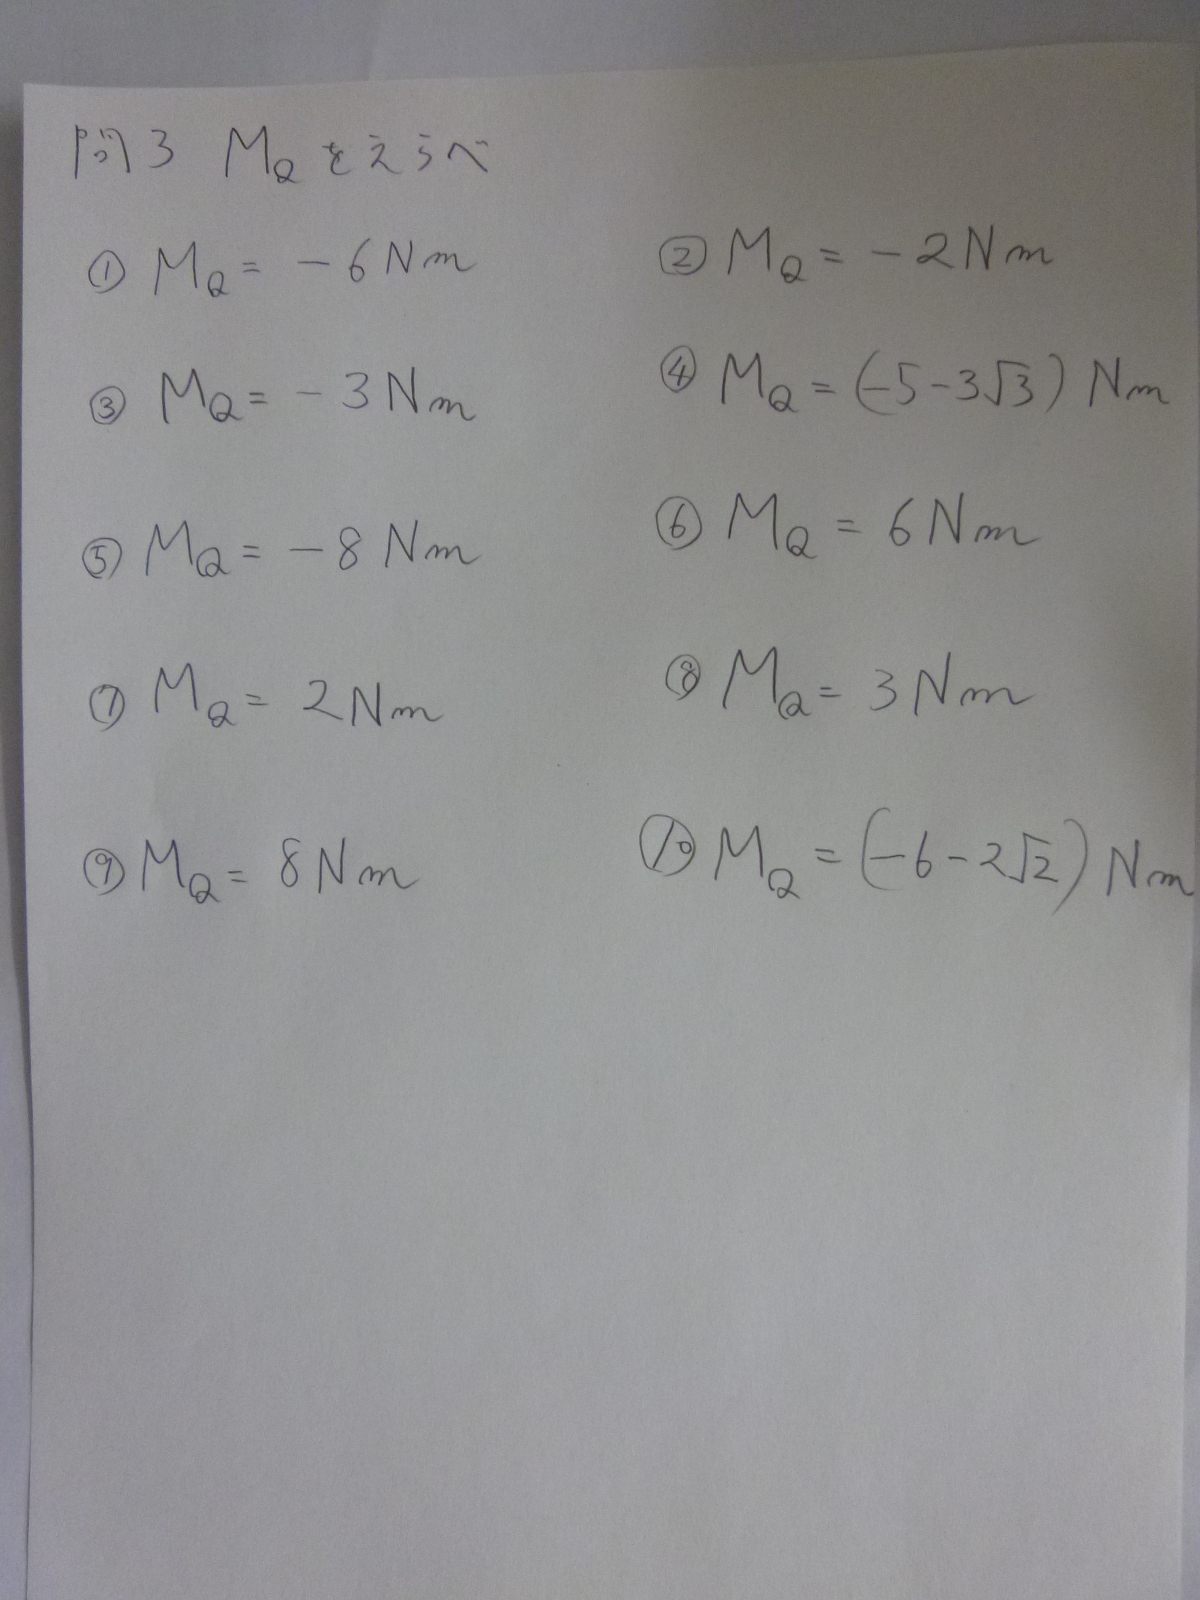 問3 MQをえらべ
① MQ = -6Nm ② MQ = -2Nm
③ MQ = -3Nm ④ MQ = (-5-3√3) Nm
⑤ MQ = -8Nm ⑥ MQ = 6Nm
⑦ MQ = 2Nm ⑧ MQ = 3Nm
⑨ MQ = 8Nm ⑩ MQ = (-6-2√2) Nm